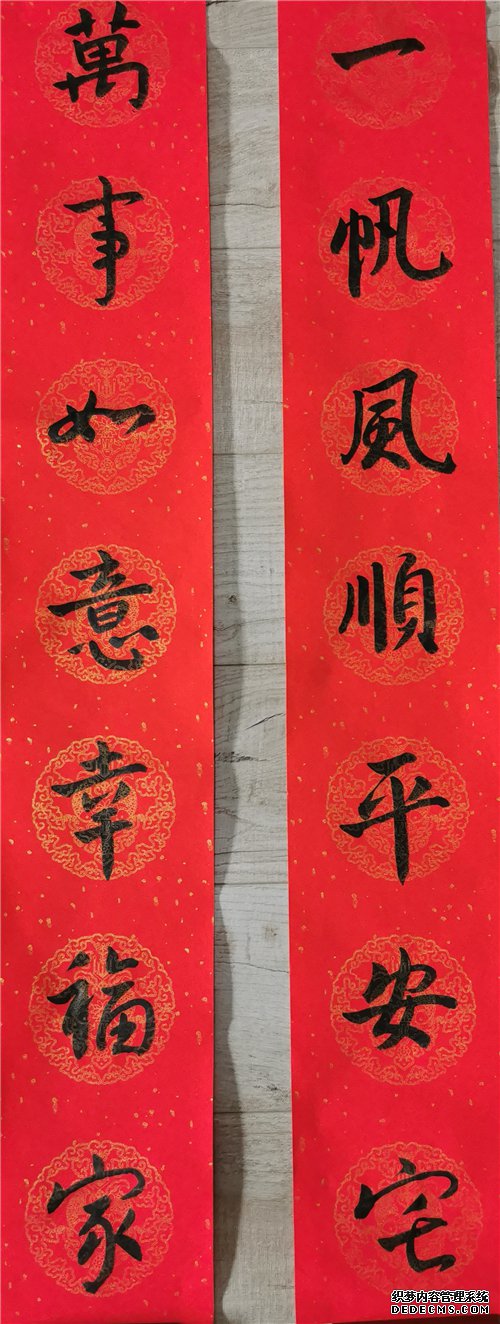 一帆風順平安宅
萬事如意幸福家
织梦内容管理系统
DEDECMS.COM